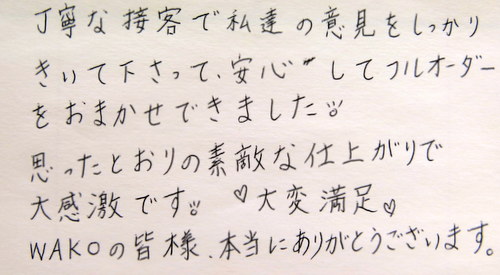 丁寧な接客で私達の意見をしっかり
きいて下さって、安心してフルオーダー
をおまかせできました!!
思ったとおりの素敵な仕上がりで
大感激です!! ♡大変満足♡
WAKOの皆様、本当にありがとうございます。